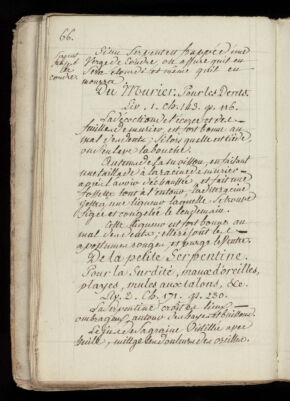 66.
Si un Serpent est frappé d'une
Verge de Coudre, on assure qu'il en
Sera étourdi et même qu'il en
mourra.
Serpent
frappé
de
coudre
Du Mourier: Pour les Dents.
Liv. 1. Ch. 143. p. 126.
La décoction de l'écorce et des
feuilles de murier, est fort bonne au
mal de dents; Si lors qu'elle est tiède,
on s'en lave la bouche.
Au tems de la moisson, en faisant
une taillade à la racine de murier
après l'avoir déchaussée, et fait une
fossette tout à l'entour; la ditte racine
jettera une liqueur laquelle se trouve
figée et congelée le lendemain.
Cette liqueur est fort bonne au
mal de dents; elle résout les
apostumes rouges, et purge le Ventre.
De la petite Serpentine.
Pour la Surdité, maux d'oreilles,
playes, mules aux talons, &c.
Liv. 2. Ch. 171. p. 230.
La Serpentine croît ès lieux
ombrageux, autour des hayes et buissons.
Le jus de la graine Distillé avec
huille, mitige les douleurs des oreilles.